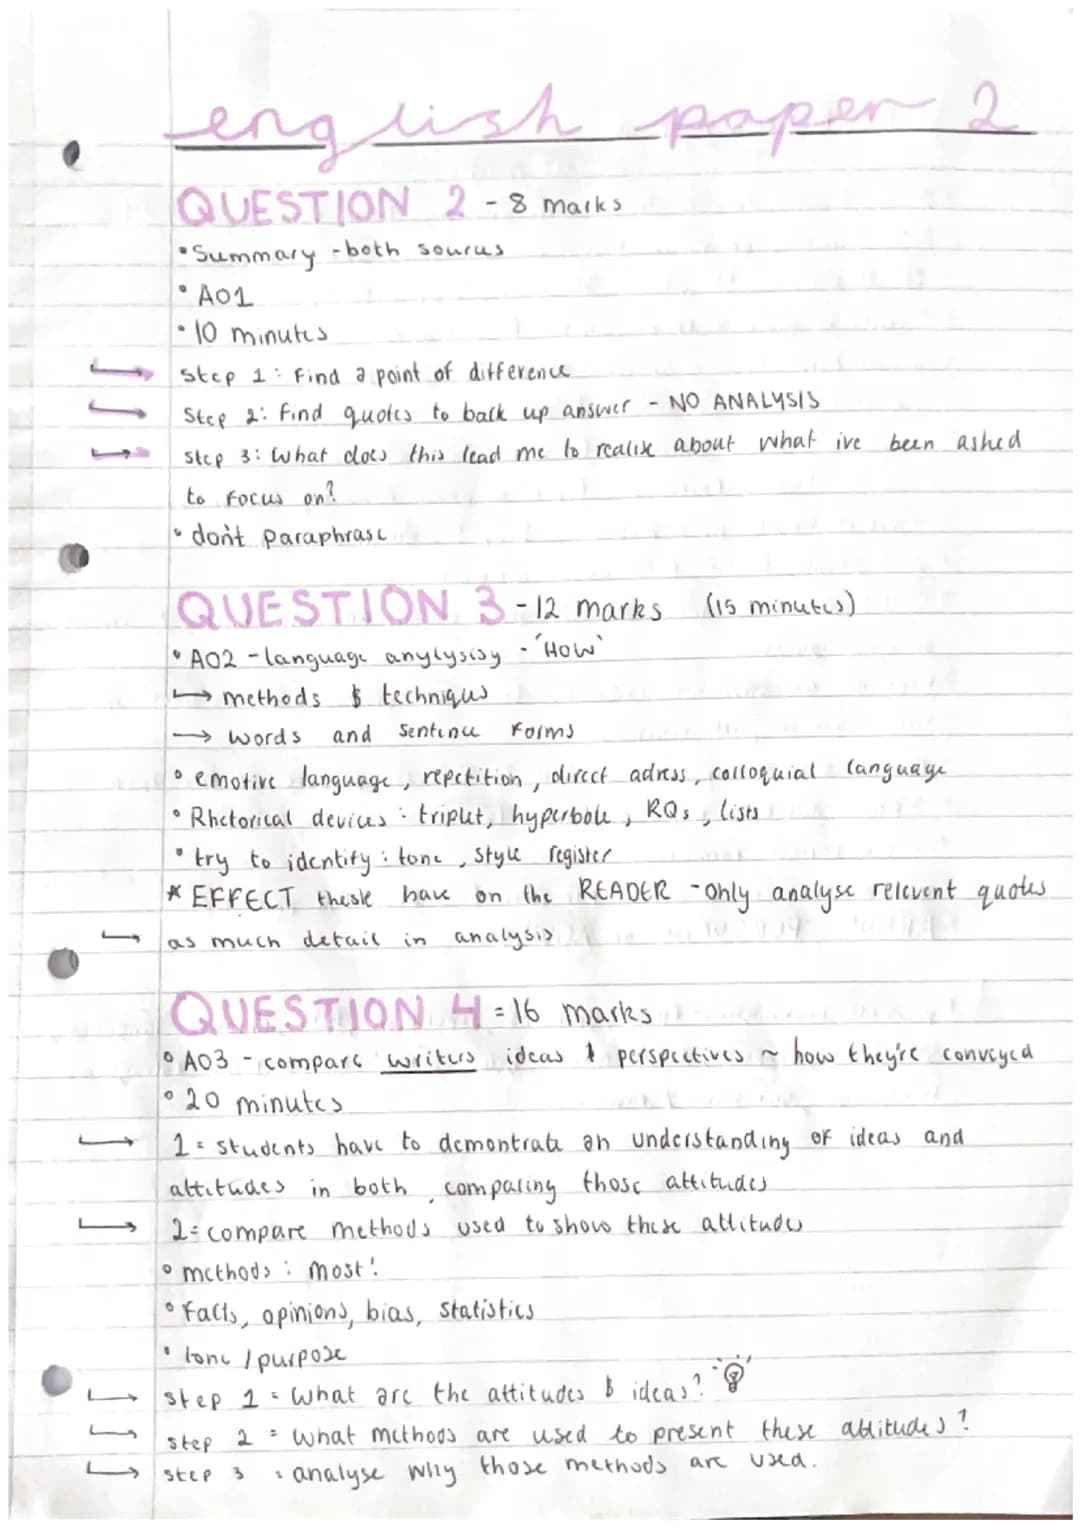 english paper 2
QUESTION 2 - 8 marks
• Summary - both sourus
• AO1
• 10 minutes
Step 1: Find a point of difference
Step 2: find quotes to back up answer - NO ANALYSIS
Step 3: What does this lead me to realise about what ive been asked
to focus on?
• don't paraphrase
QUESTION 3 - 12 marks (15 minutes)
• AO2 - language anylysisy - 'HOW'
→ methods & techniques
→ words and sentence forms
• emotive language, repetition, direct adress, colloquial language
• Rhetorical devices: triplet, hyperbole, RQs, lists
• try to identify: tone, style register
* EFFECT these have on the READER - only analyse relevent quotes
→ as much detail in analysis
QUESTION 4 = 16 marks
• AO3 - compare writers ideas & perspectives ~ how they're conveyed
• 20 minutes
→ 1 = students have to demontrate an understanding of ideas and
attitudes in both, comparing those attitudes
→ 2 = compare methods used to show these attitudes
• methods: most!
• Facts, opinions, bias, statistics
• tone / purpose
→ step 1 = What are the attitudes & ideas?
→ step 2 = What methods are used to present these attitudes?
→ step 3 : analyse why those methods are used.